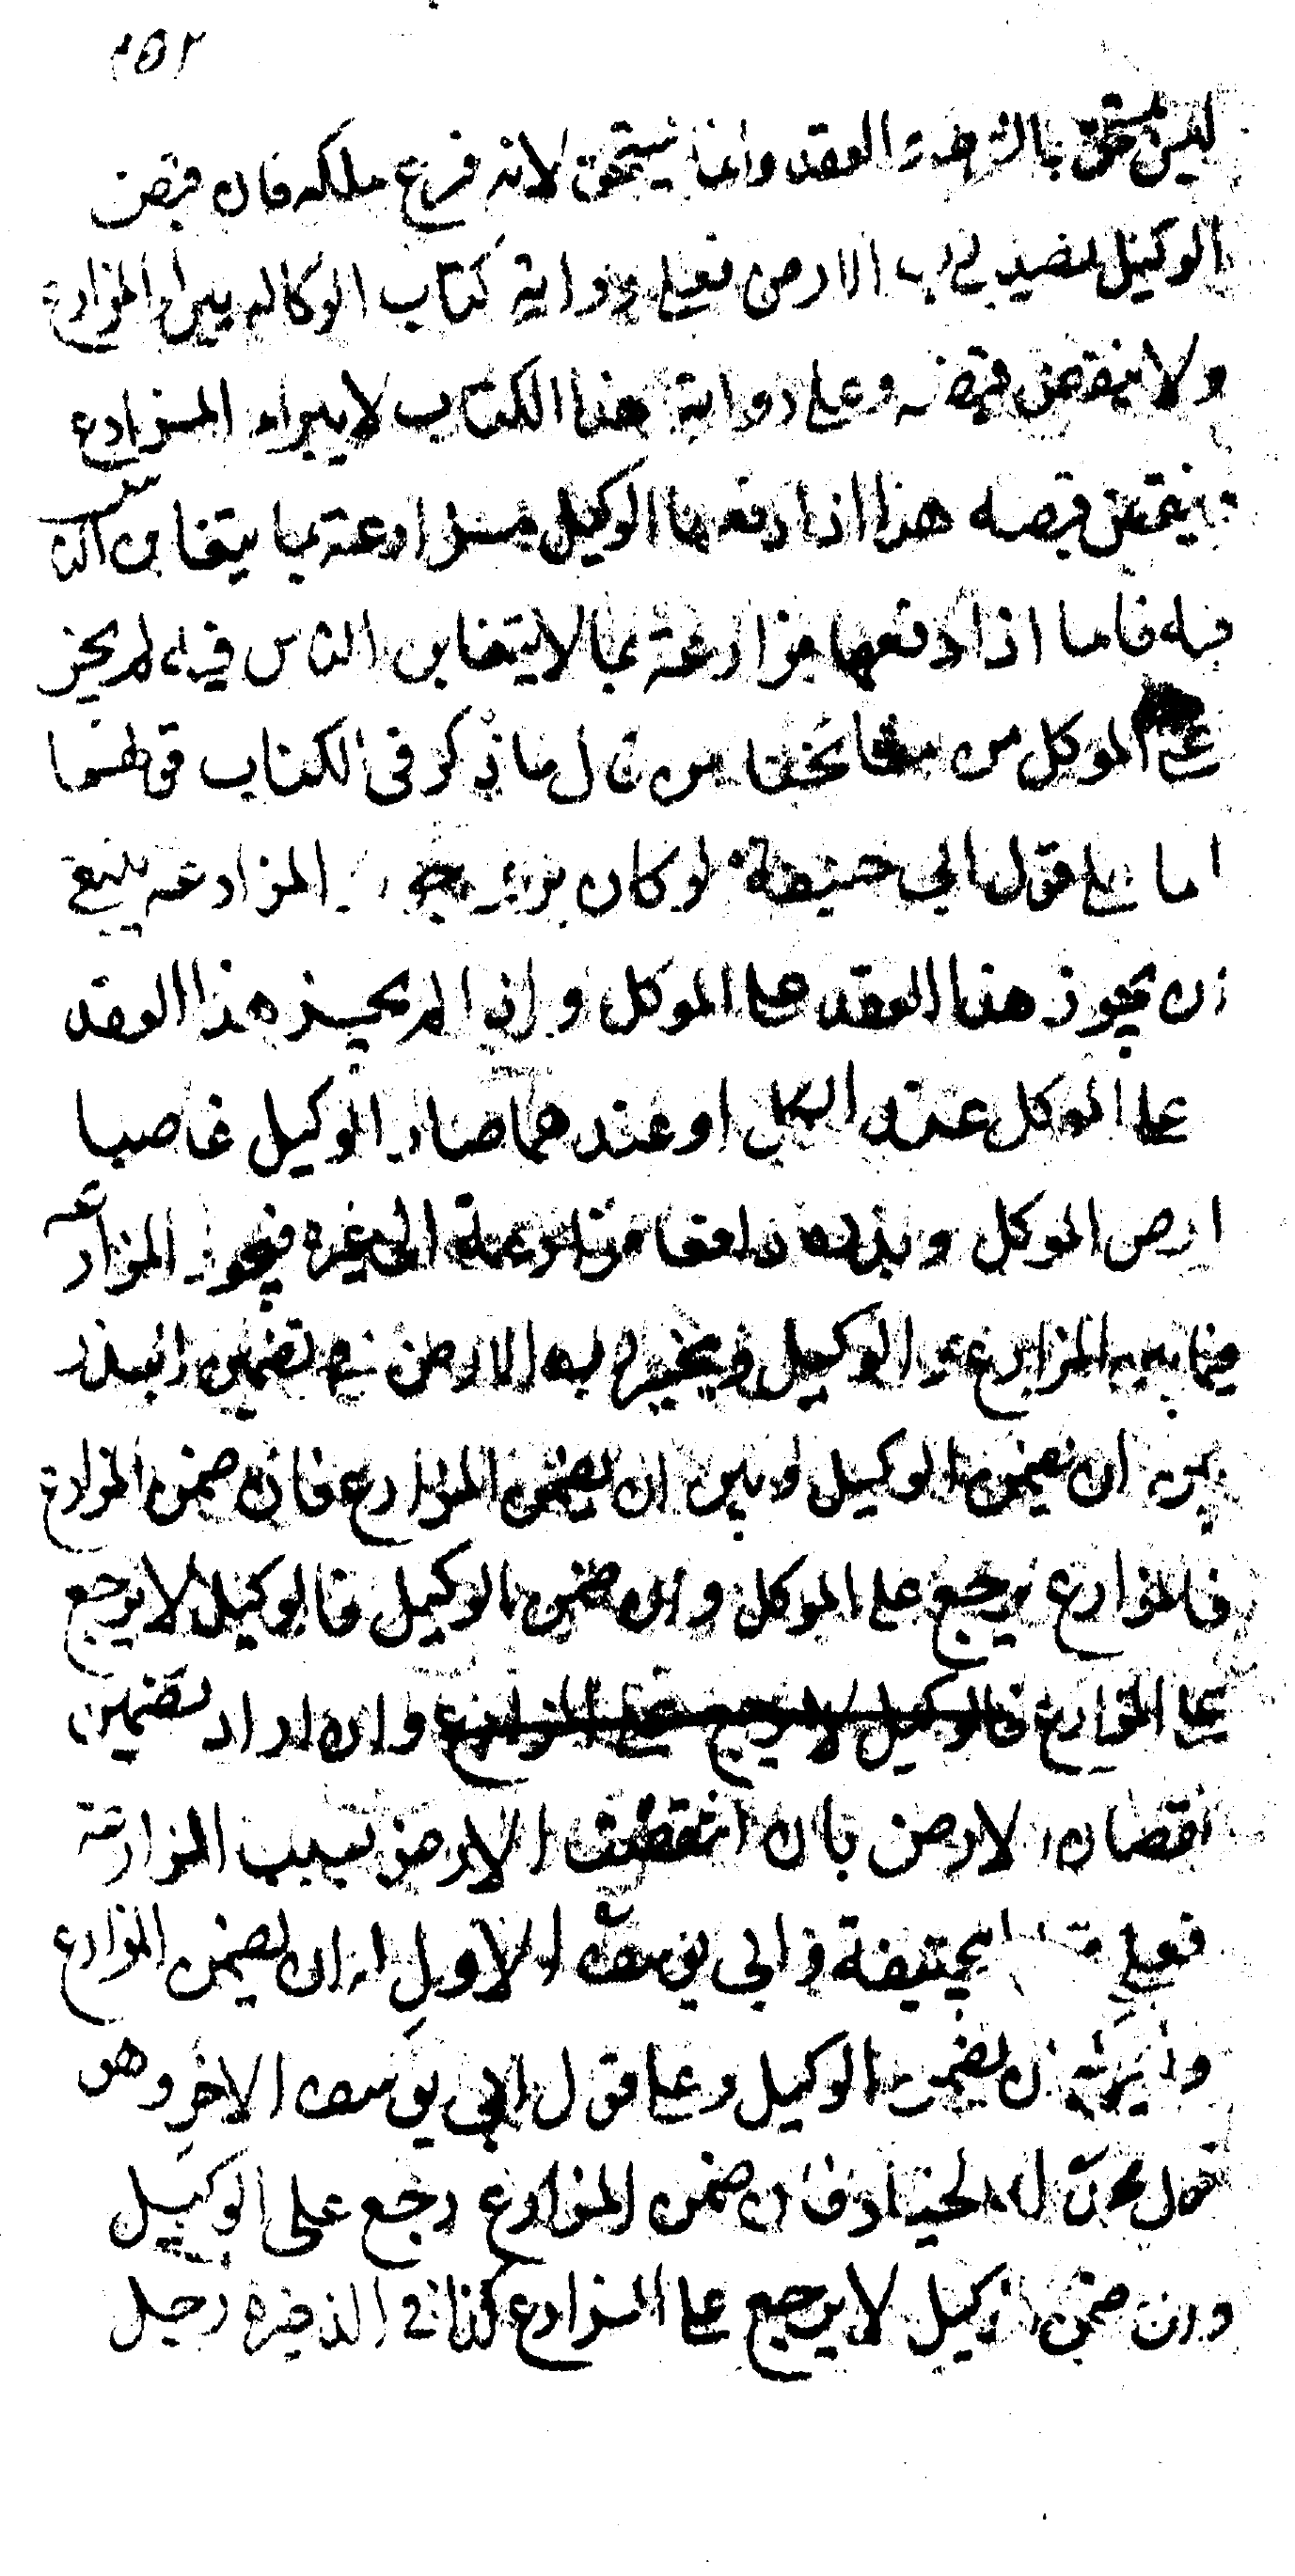 ١٥٢
ليس يستحق العقد وانما يستحق لانه فرع ملكه فان قبض
الوكيل نصيب رب الارض فعلى رواية كتاب الوكاله يبراء المزارع
ولا ينقض قبضه وعلى رواية هذا الكتاب لا يبراء المزارع
وينقض قبضه هذا اذا دفعها الوكيل مزارعة بما يتغابن الناس
فيه فاما اذا دفعها مزارعة بما لا يتغابن الناس فيه لم يجز
على الموكل من مشائخنا من قال ما ذكر في الكتاب قولهما
اما على قول ابي حنيفة لو كان يرى المزارعه ينبغي
ان يجوز هذا العقد على الموكل واذا لم يجز هذا العقد
على الموكل عند الكل او عندهما صار الوكيل غاصبا
ارض الموكل وبذره دافعا مزارعة الى غيره فيجوز المزارعه
فيما بين المزارع و الوكيل ويخير رب الارض في تضمين البذر
بين ان يضمن الوكيل وبين ان يضمن المزارع فان ضمن المزارع
فالمزارع يرجع على الموكل وان ضمن الوكيل فالوكيل لا يرجع
على المزارع فالوكيل لا يرجع على المزارع وان اراد تضمين
نقصان الارض بان انتقضت الارض بسبب المزارعة
فعلى ابيحنيفة وابي يوسف الاول له ان يضمن المزارع
وليس له ان يضمن الوكيل وعلى قول ابي يوسف الاخر وهو
قول محمد له الخيار فان ضمن المزارع رجع على الوكيل
وان ضمن الوكيل لا يرجع على المزارع كذا في الذخيره رجل